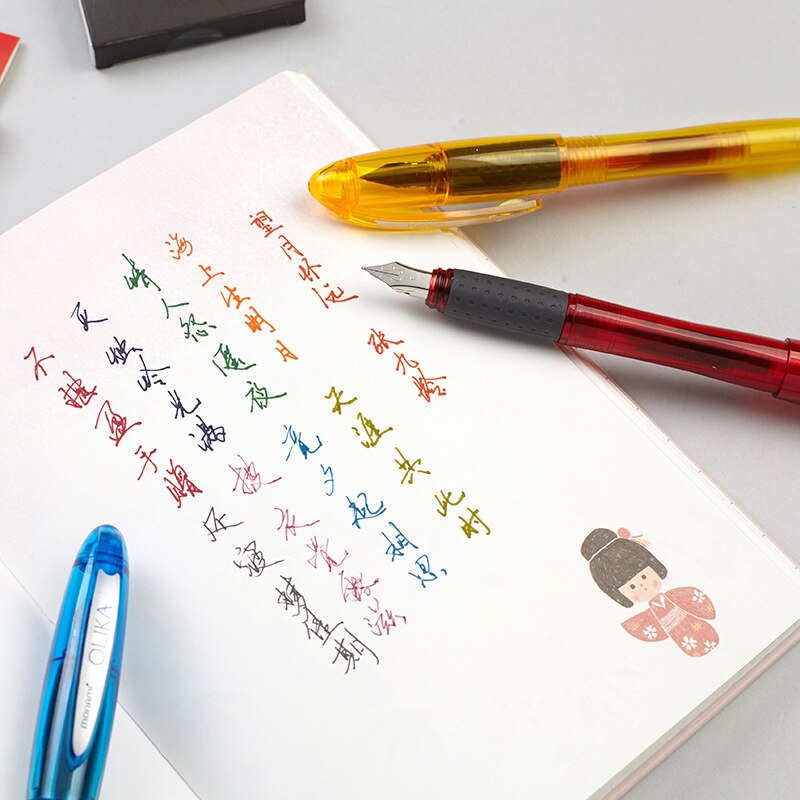 望月怀远 张九龄
海上生明月 天涯共此时
情人怨遥夜 竟夕起相思
灭烛怜光满 披衣觉露滋
不堪盈手赠 还寝梦佳期
monami OLIKA